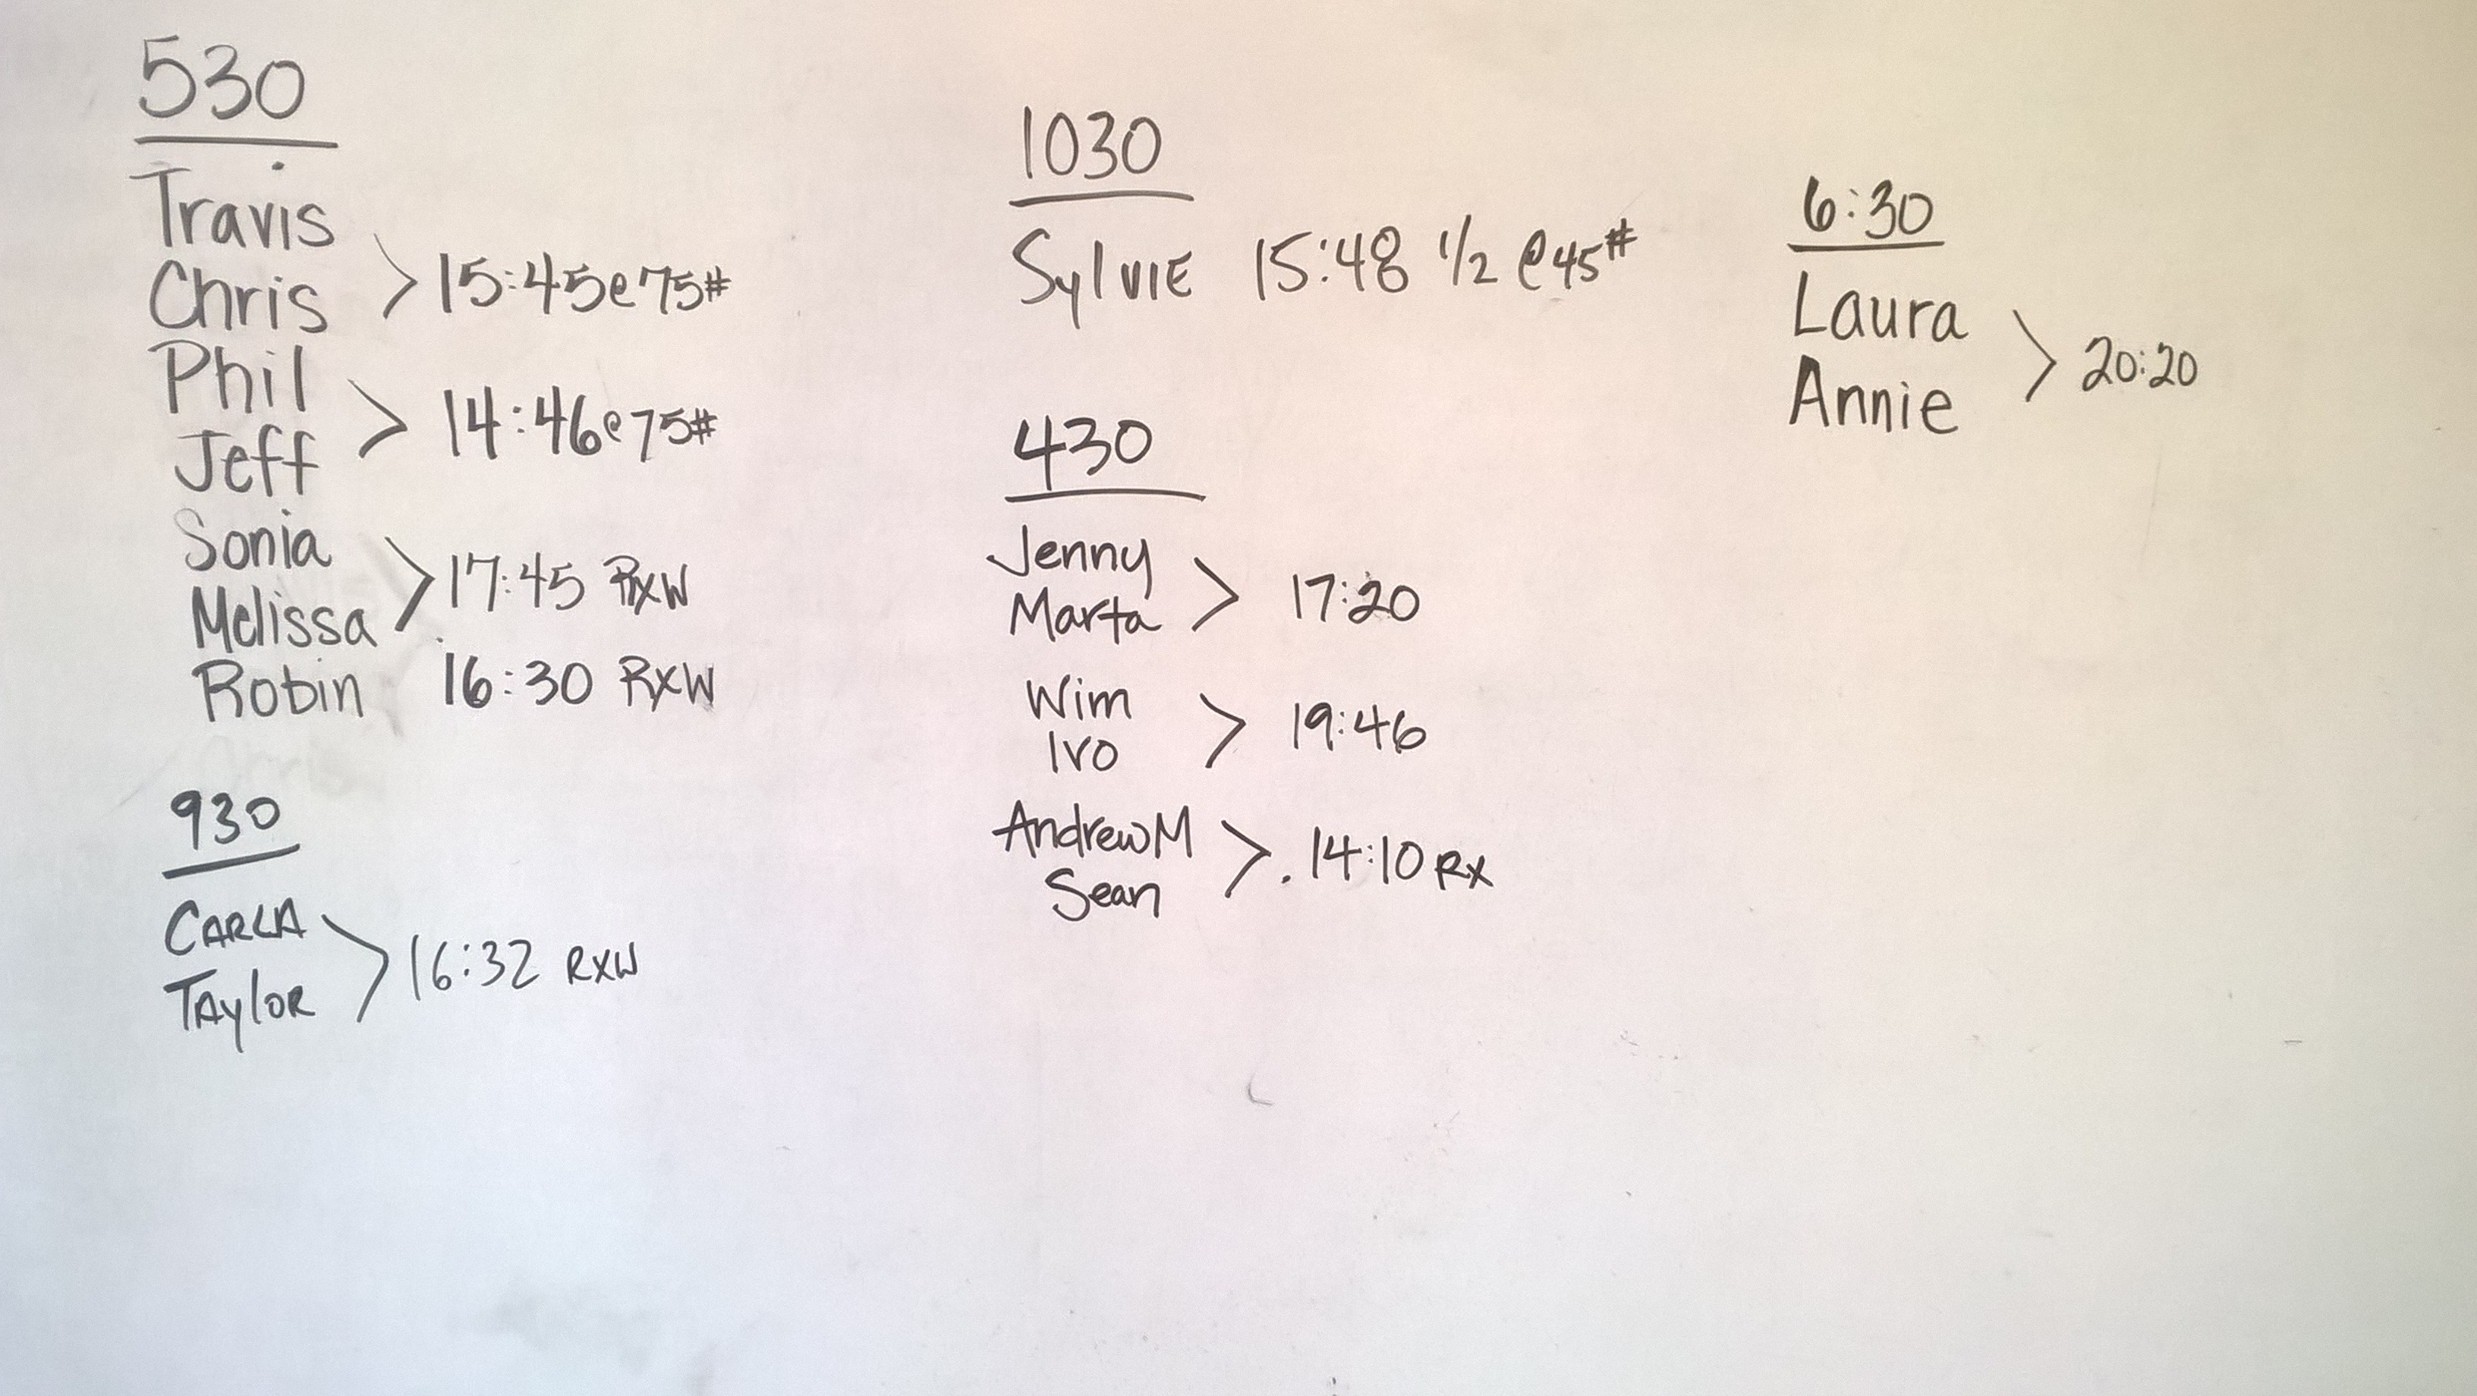 530
Travis
Chris > 15:45@75#
Phil
Jeff > 14:46@75#
Sonia
Melissa > 17:45 RXW
Robin 16:30 RXW
930
CARLA
TAylOR > 16:32 RXW
1030
SylVIE 15:48 1/2 @45#
430
Jenny
Marta > 17:20
Wim
Ivo > 19:46
Andrew M
Sean > 14:10 RX
6:30
Laura
Annie > 20:20